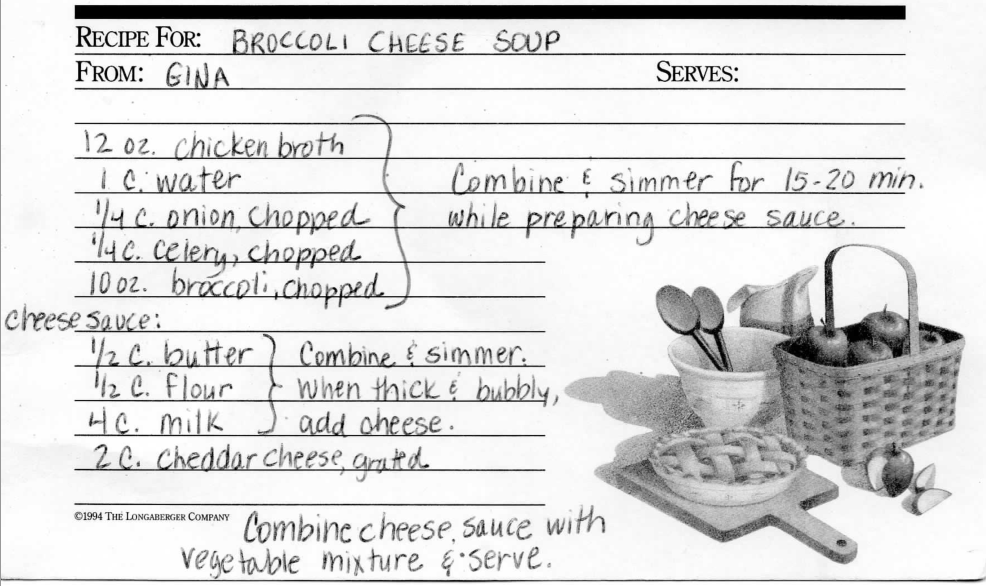 RECIPE FOR: BROCCOLI CHEESE SOUP
FROM: GINA SERVES:
12 oz. chicken broth
1 c. water
1/4 c. onion, chopped
1/4 c. celery, chopped
10 oz. broccoli, chopped
Combine & simmer for 15-20 min.
while preparing cheese sauce.
cheese sauce:
1/2 c. butter
1/2 c. flour
4 c. milk
Combine & simmer.
When thick & bubbly,
add cheese.
2 c. cheddar cheese, grated
©1994 THE LONGABERGER COMPANY
Combine cheese sauce with
vegetable mixture & serve.